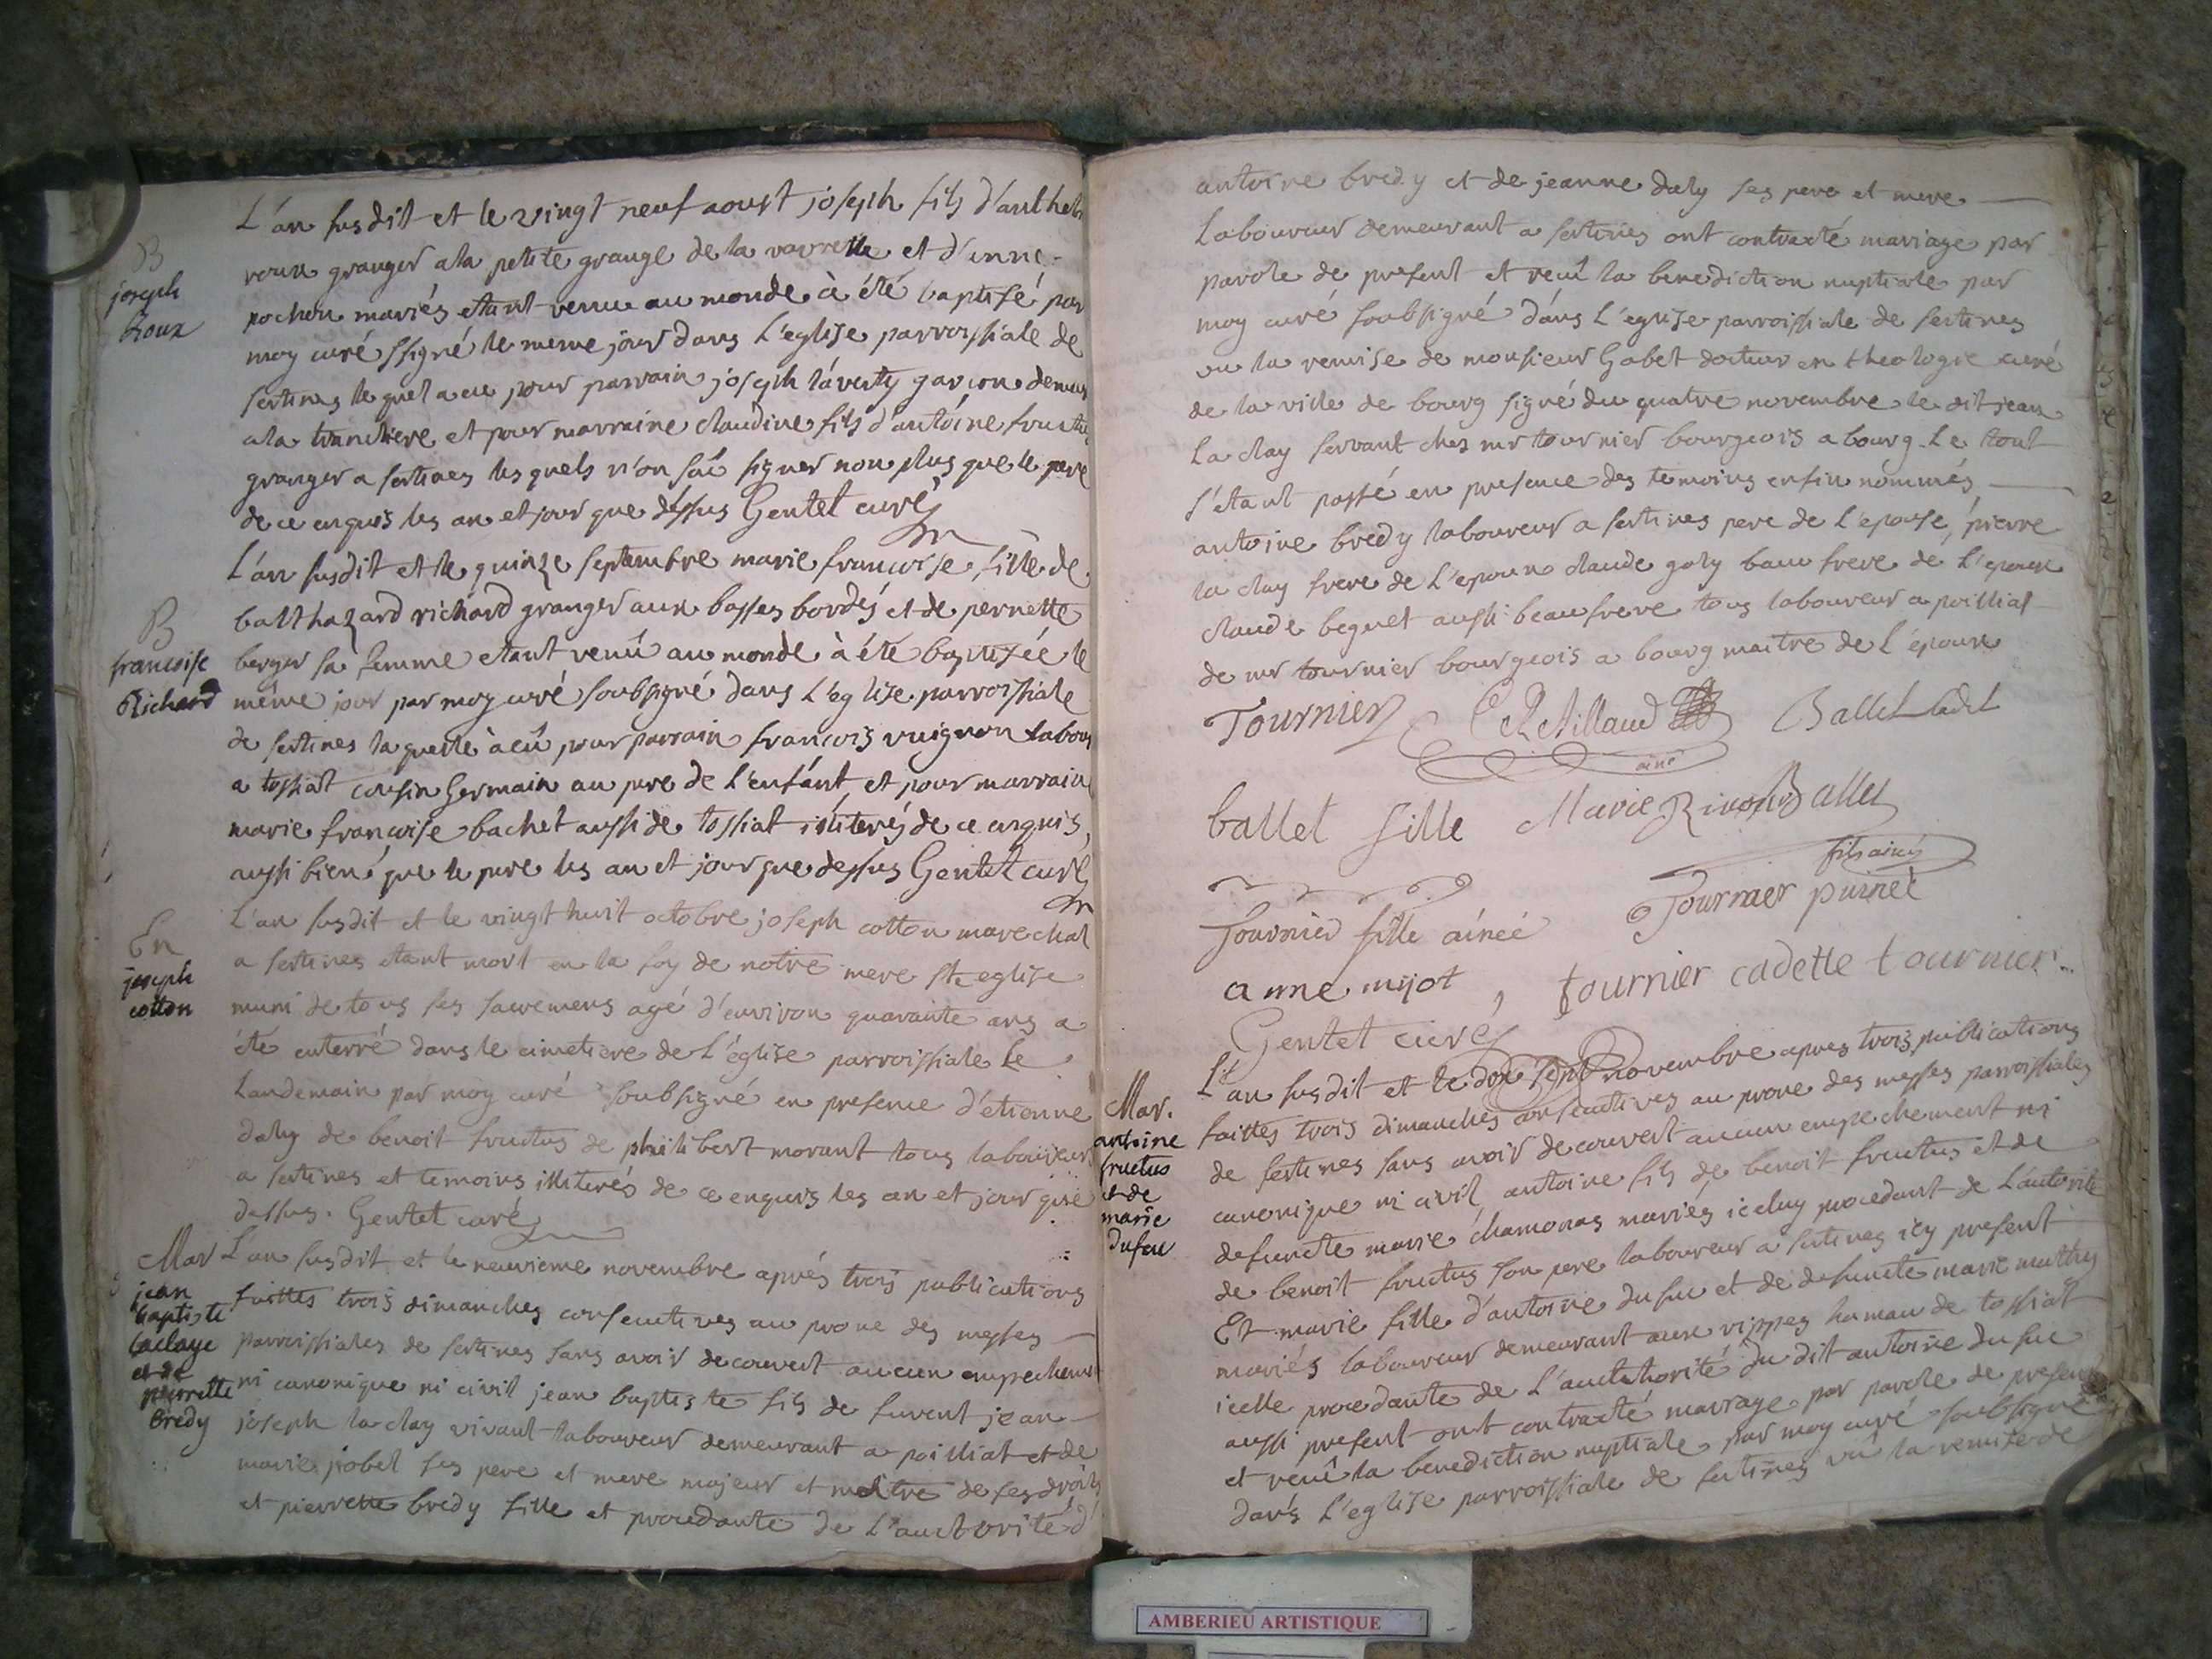 L'an susdit et le vingt neuf aoust joseph fils d'anthel
roux granger a la petite grange de la vavrette et d'anne
pochon mariés etant venu au monde à été baptisé par
moy curé ssigné le meme jour dans L'eglise parroissiale de
sertines lequel a eu pour parrain joseph laverty garçon demeur
a la tranchiere et pour marraine claudine fils d'antoine fructu
granger a sertines lesquels n'on sçû signer non plus que le pere
de ce enquis les an et jour que dessus Gentet curé
B
joseph
Roux
L'an susdit et le quinze septembre marie francoise fille de
balthazard richard granger aux basses bordes et de pernette
berger sa femme etant venû au monde à été baptisée le
même jour par moy curé soubsigné dans L'eglise parroissiale
de sertines laquelle à eû pour parrain francois vuignon labour
a tossiat cousin germain au pere de l'enfant et pour marrain
marie francoise bachet aussi de tossiat illiterés de ce enquis
aussi bien que le pere les an et jour que dessus Gentet curé
B
francoise
Richard
L'an susdit et le vingt huit octobre joseph cotton marechal
a sertines etant mort en la foy de notre mere ste eglise
muni de tous ses sacremens agé d'environ quarante ans a
été enterré dans le cimetiere de L'église parroissiale le
Landemain par moy curé soubsigné en presence d'etienne
daly de benoit fructus de philibert morant tous laboureur
a sertines et temoins illiterés de ce enquis les an et jour que
dessus. Gentet curé
En
joseph
cotton
L'an susdit et le neuvieme novembre aprés trois publications
faittes trois dimanches consecutives au prone des messes
parroissiales de sertines sans avoir decouvert aucun empechem
ni canonique ni civil jean baptiste fils de furent jean
joseph la clay vivant laboureur demeurant a poilliat et de
marie jobel ses pere et mere majeur et maitre de ses droits
et pierrette bredy fille et procedante de L'auctorité d
Mar
jean
baptiste
laclaye
et de
pierrette
bredy
antoine bredy et de jeanne daly ses pere et mere
Laboureur demeurant a sertines ont contracté mariage par
parole de present et reçû la benediction nuptiale par
moy curé soubsigné dans L'eglise parroissiale de sertines
vu la remise de monsieur Gabet docteur en theologie curé
de la ville de bourg signé du quatre novembre le dit jean
La clay servant chez mr tournier bourgeois a bourg. Le tout
s'etant passé en presence des temoins enfin nommés
antoine bredy laboureur a sertines pere de l'epouse, pierre
la clay frere de L'epoux claude goly beau frere de L'epoux
claude beguet aussi beau frere tous laboureur a poilliat
de mr tournier bourgeois a bourg maitre de L'époux
Tournier CRetillaud Ballet Cadet
ainé
ballet fille Marie Ballet
fils ainé
Tournier fille ainée Tournier puiné
anne mijot, tournier cadette tournier
Gentet curé
L'an susdit et le dix sept novembre apres trois publications
faittes trois dimanches consecutives au prone des messes parroissiales
de sertines sans avoir decouvert aucun empechement ni
canonique ni civil antoine fils de benoit fructus et de
defuncte marie chamonas mariés iceluy procedant de L'autorité
de benoit fructus son pere laboureur a sertines icy present
Et marie fille d'antoine dufeu et de defuncte marie mathy
mariés laboureur demeurant aux rippes hamau de tossiat
icelle procedante de L'aucthorité du dit antoine dufeu
aussi present ont contracté mariage par parole de presen
et reçû la benediction nuptiale par moy curé soubsigné
dans L'eglise parroissiale de sertines vû la remise de
Mar.
antoine
fructus
et de
marie
dufeu
AMBERIEU ARTISTIQUE